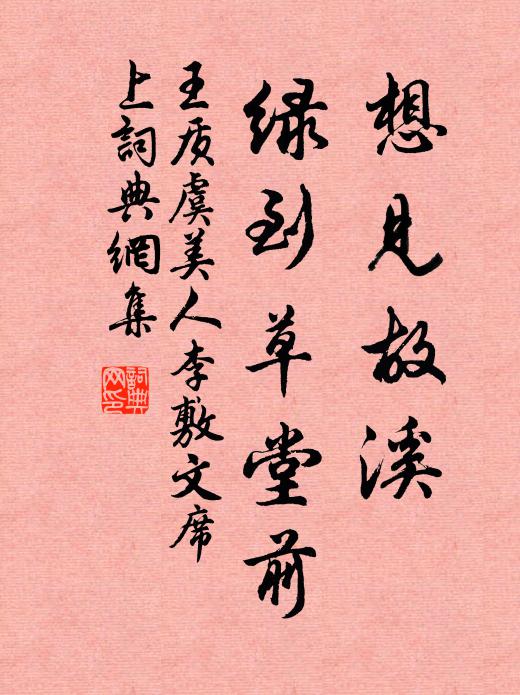 想见故溪
绿到草堂前
王质虞美人李敷文席
上詞典網集
詞典网印